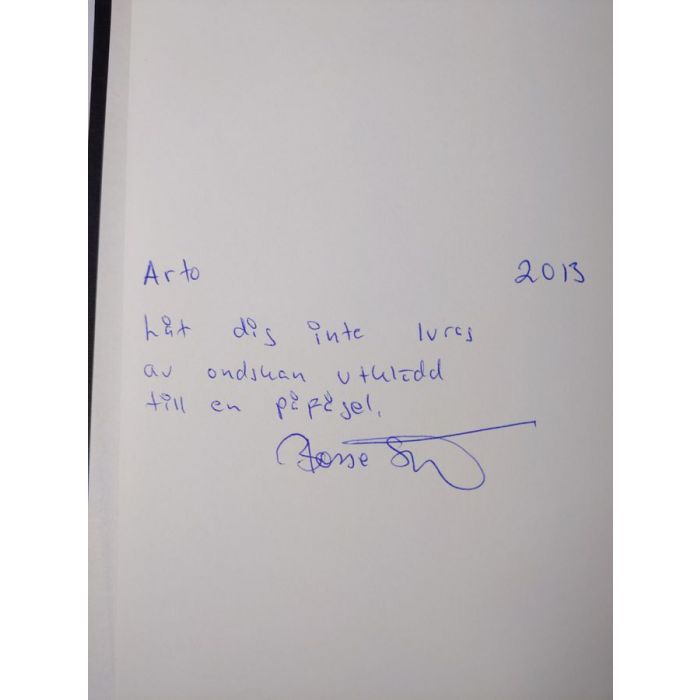 Arto 2013
Låt dig inte luras
av ondskan utklädd
till en påfågel.
Bosse